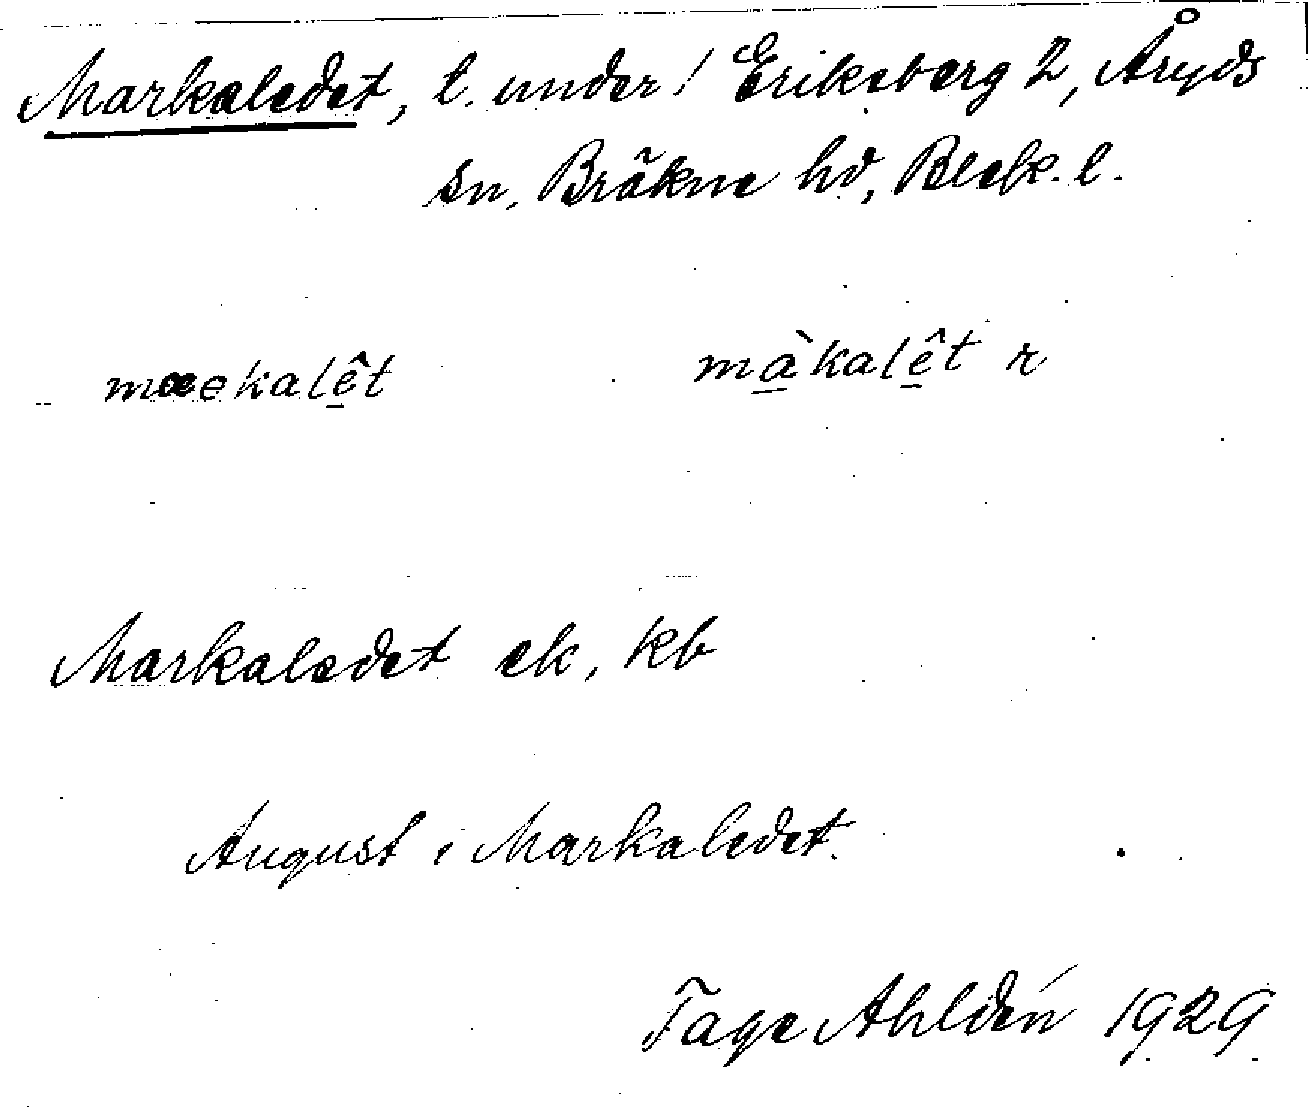 Markaledet, t. under / Eriksberg 2, Åryds
sn, Bräkne hd, Blek. l.
maekalêt màkalêt r
Markaledet ek, kb
August i Markaledet.
Tage Ahldén 1929